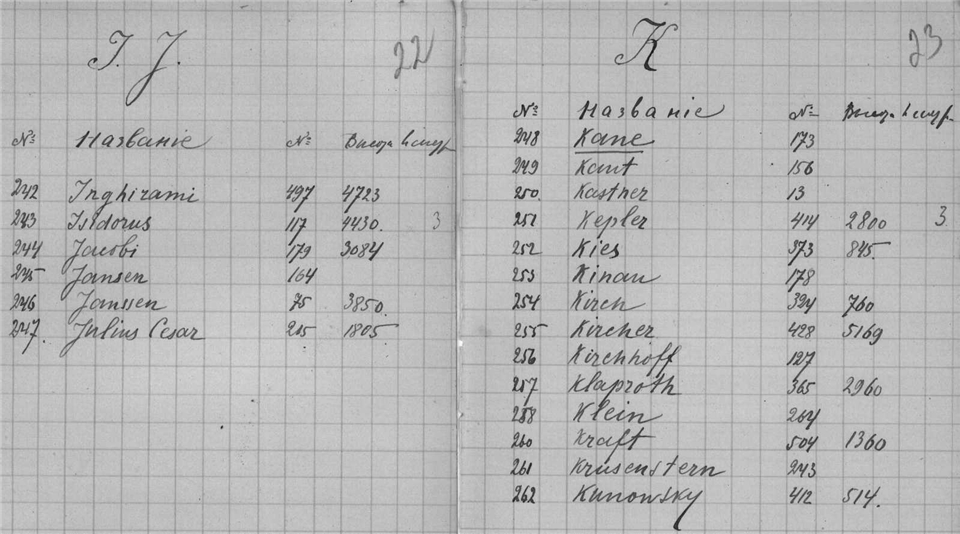 I. J. 22
№ Названіе № Высота
242 Inghirami 497 4723
243 Isidorus 117 4430. 3
244 Jacobi 179 3084
245 Jansen 164
246 Janssen 75 3850.
247. Julius Cesar 215 1805.
K 23
№ Названіе № Высота
248 Kane 173
249 Kant 156
250. Kastner 13
251 Kepler 414 2800 3
252 Kies 373 845.
253 Kinau 178
254 Kirch 324 760
255 Kircher 428 5169
256 Kirchhoff 127
257 Klaproth 365 2960
258 Klein 264
260 Kraft 504 1360
261 Krusenstern 243
262 Kunowsky 412 514.